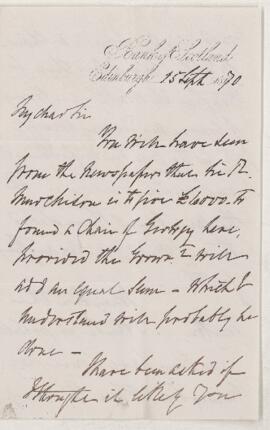 Bank of Scotland
Edinburgh 15 Sept 1870
My dear Sir
You will have seen
from the Newspapers that Sir R.
Murchison is to give £6000 to
found a Chair of Geology here,
provided the Crown will
add an equal sum – which I
understand will probably be
done –
I have been asked if
I thought it likely you